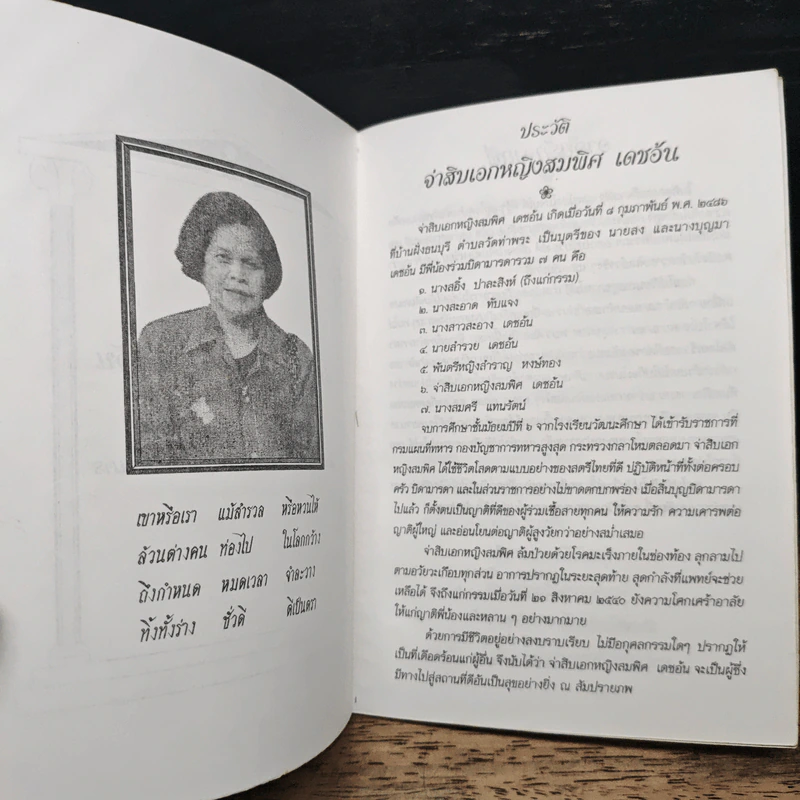 เขาหรือเรา แม้สำรวล หรือหวนไห้
ล้วนต่างคน ท่องไป ในโลกกว้าง
ถึงกำหนด หมดเวลา จำละวาง
ทิ้งทั้งร่าง ชั่วดี ดีเป็นตรา
ประวัติ
จ่าสิบเอกหญิงสมพิศ เดชอ้น
จ่าสิบเอกหญิงสมพิศ เดชอ้น เกิดเมื่อวันที่ ๘ กุมภาพันธ์ พ.ศ. ๒๔๘๖
ที่บ้านฝั่งธนบุรี ตำบลวัดท่าพระ เป็นบุตรีของ นายสง และนางบุญมา
เดชอ้น มีพี่น้องร่วมบิดามารดารวม ๗ คน คือ
๑. นางลอิ้ง ปาละสิงห์ (ถึงแก่กรรม)
๒. นางสะอาด ทับแจง
๓. นางสาวสะอาง เดชอ้น
๔. นายสำรวย เดชอ้น
๕. พันตรีหญิงสำราญ หงษ์ทอง
๖. จ่าสิบเอกหญิงสมพิศ เดชอ้น
๗. นางสมศรี แทนรัตน์
จบการศึกษาชั้นมัธยมปีที่ ๖ จากโรงเรียนวัฒนะศึกษา ได้เข้ารับราชการที่
กรมแผนที่ทหาร กองบัญชาการทหารสูงสุด กระทรวงกลาโหมตลอดมา จ่าสิบเอก
หญิงสมพิศ ได้ใช้ชีวิตโสดตามแบบอย่างของสตรีไทยที่ดี ปฏิบัติหน้าที่ทั้งต่อครอบ
ครัว บิดามารดา และในส่วนราชการอย่างไม่ขาดตกบกพร่อง เมื่อสิ้นบุญบิดามารดา
ไปแล้ว ก็ตั้งตนเป็นญาติที่ดีของผู้ร่วมเชื้อสายทุกคน ให้ความรัก ความเคารพต่อ
ญาติผู้ใหญ่ และอ่อนโยนต่อญาติผู้สูงวัยกว่าอย่างสม่ำเสมอ
จ่าสิบเอกหญิงสมพิศ ล้มป่วยด้วยโรคมะเร็งภายในช่องท้อง ลุกลามไป
ตามอวัยวะเกือบทุกส่วน อาการปรากฏในระยะสุดท้าย สุดกำลังที่แพทย์จะช่วย
เหลือได้ จึงถึงแก่กรรมเมื่อวันที่ ๒๑ สิงหาคม ๒๕๔๐ ยังความโศกเศร้าอาลัย
ให้แก่ญาติพี่น้องและหลาน ๆ อย่างมากมาย
ด้วยการมีชีวิตอยู่อย่างสงบราบเรียบ ไม่มีอกุศลกรรมใดๆ ปรากฏให้
เป็นที่เดือดร้อนแก่ผู้อื่น จึงนับได้ว่า จ่าสิบเอกหญิงสมพิศ เดชอ้น จะเป็นผู้ซึ่ง
มีทางไปสู่สถานที่ดีอันเป็นสุขอย่างยิ่ง ณ สัมปรายภพ